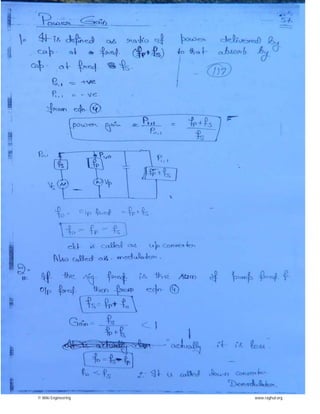 Power Gain
1. It is defined as ratio of power delivered by
cap. at freq. (fp+fs) to that absorb by
cap. at freq. fs.
117
P1,1 = +ve
P1,1 = -ve
from eqn. (4)
power gain = = fp+fs / fs
fs
fp
fp+fs
Vs
Vp
fo = o/p freq = fp+fs
fo - fp = fs
ckt is called as up converter
Also called as modulator.
2. If the sig. freq. is the sum of pump freq. &
o/p freq. then from eqn (4)
fs = fp + fo
Gain = fs / fp+fs < 1
actually it is loss
fo = fs - fp
fo < fs
It is called down converter
Demodulator.
© Wiki Engineering
www.raghul.org